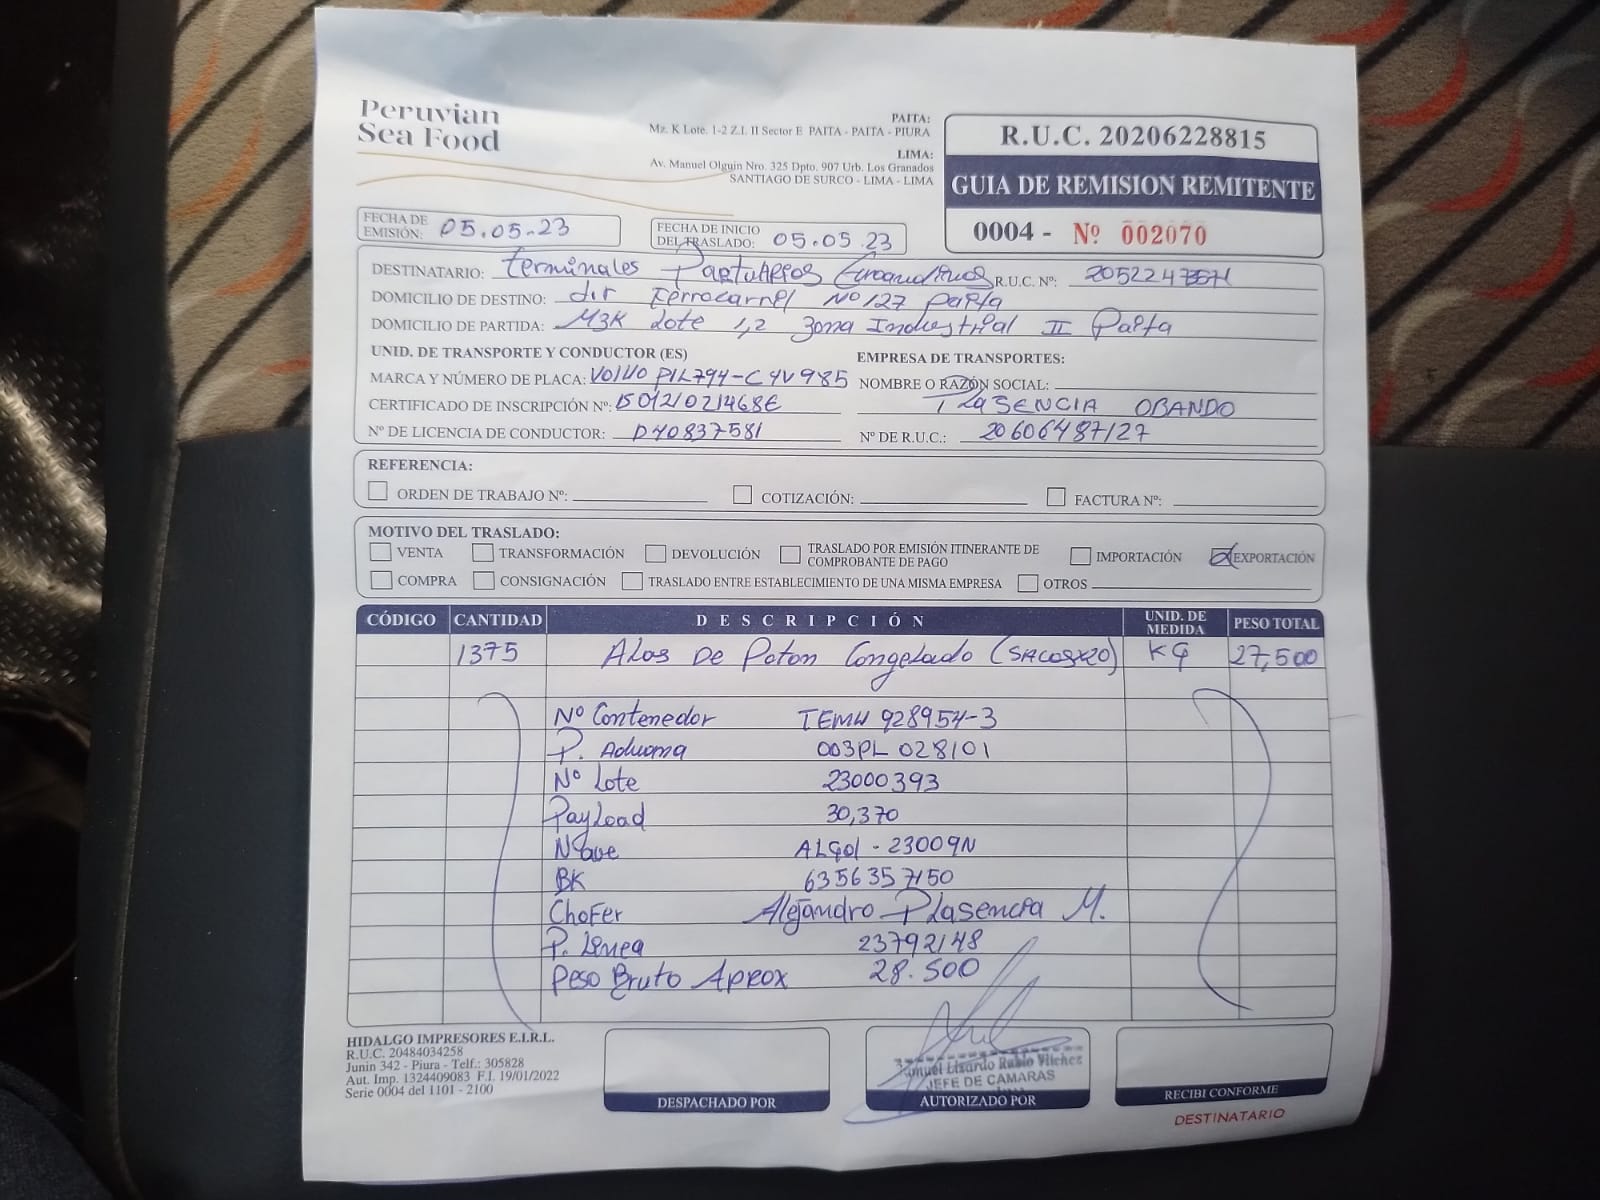 Peruvian
Sea Food
PAITA:
Mz. K Lote. 1-2 Z.I. II Sector E PAITA - PAITA - PIURA
LIMA:
Av. Manuel Olguin Nro. 325 Dpto. 907 Urb. Los Granados
SANTIAGO DE SURCO - LIMA - LIMA
R.U.C. 20206228815
GUIA DE REMISION REMITENTE
0004 - Nº 002070
FECHA DE EMISIÓN: 05.05.23
FECHA DE INICIO DEL TRASLADO: 05.05.23
DESTINATARIO: Terminales Portuarios Euroandinos R.U.C. Nº:
DOMICILIO DE DESTINO: Jir Ferrocarril Nº 127 Paita
DOMICILIO DE PARTIDA: MzK Lote 1,2 Zona Industrial II Paita
UNID. DE TRANSPORTE Y CONDUCTOR (ES) EMPRESA DE TRANSPORTES:
MARCA Y NÚMERO DE PLACA: VOLVO P1L794-C4V985 NOMBRE O RAZÓN SOCIAL:
CERTIFICADO DE INSCRIPCIÓN Nº: PLASENCIA OBANDO
Nº DE LICENCIA DE CONDUCTOR: D40837581 Nº DE R.U.C.: 20606487127
REFERENCIA:
ORDEN DE TRABAJO Nº: COTIZACIÓN: FACTURA Nº:
MOTIVO DEL TRASLADO:
VENTA TRANSFORMACIÓN DEVOLUCIÓN TRASLADO POR EMISIÓN ITINERANTE DE COMPROBANTE DE PAGO IMPORTACIÓN EXPORTACIÓN
COMPRA CONSIGNACIÓN TRASLADO ENTRE ESTABLECIMIENTO DE UNA MISMA EMPRESA OTROS
CÓDIGO CANTIDAD DESCRIPCIÓN UNID. DE MEDIDA PESO TOTAL
1375 Alas De Poton Congelado (SACOSX20) KG 27,500
Nº Contenedor TEMU 928954-3
P. Aduana 003PL 028101
Nº Lote 23000393
PayLoad 30,370
Nave ALGOl - 23009N
BK 6356357150
Chofer Alejandro Plasencia M.
P. Linea 23792148
Peso Bruto Aprox 28.500
HIDALGO IMPRESORES E.I.R.L.
R.U.C. 20484034258
Junin 342 - Piura - Telf.: 305828
Aut. Imp. 1324409083 F.I. 19/01/2022
Serie 0004 del 1101 - 2100
DESPACHADO POR
Manuel Lizardo Rubio Vilchez
JEFE DE CAMARAS
AUTORIZADO POR
RECIBI CONFORME
DESTINATARIO